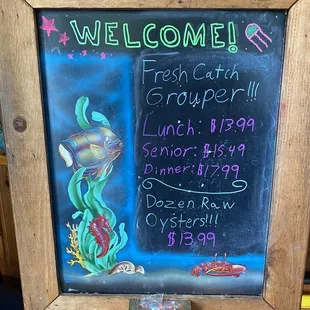 WELCOME!
Fresh Catch
Grouper!!!
Lunch: $13.99
Senior: $15.49
Dinner: $17.99
Dozen Raw
Oysters!!!
$13.99